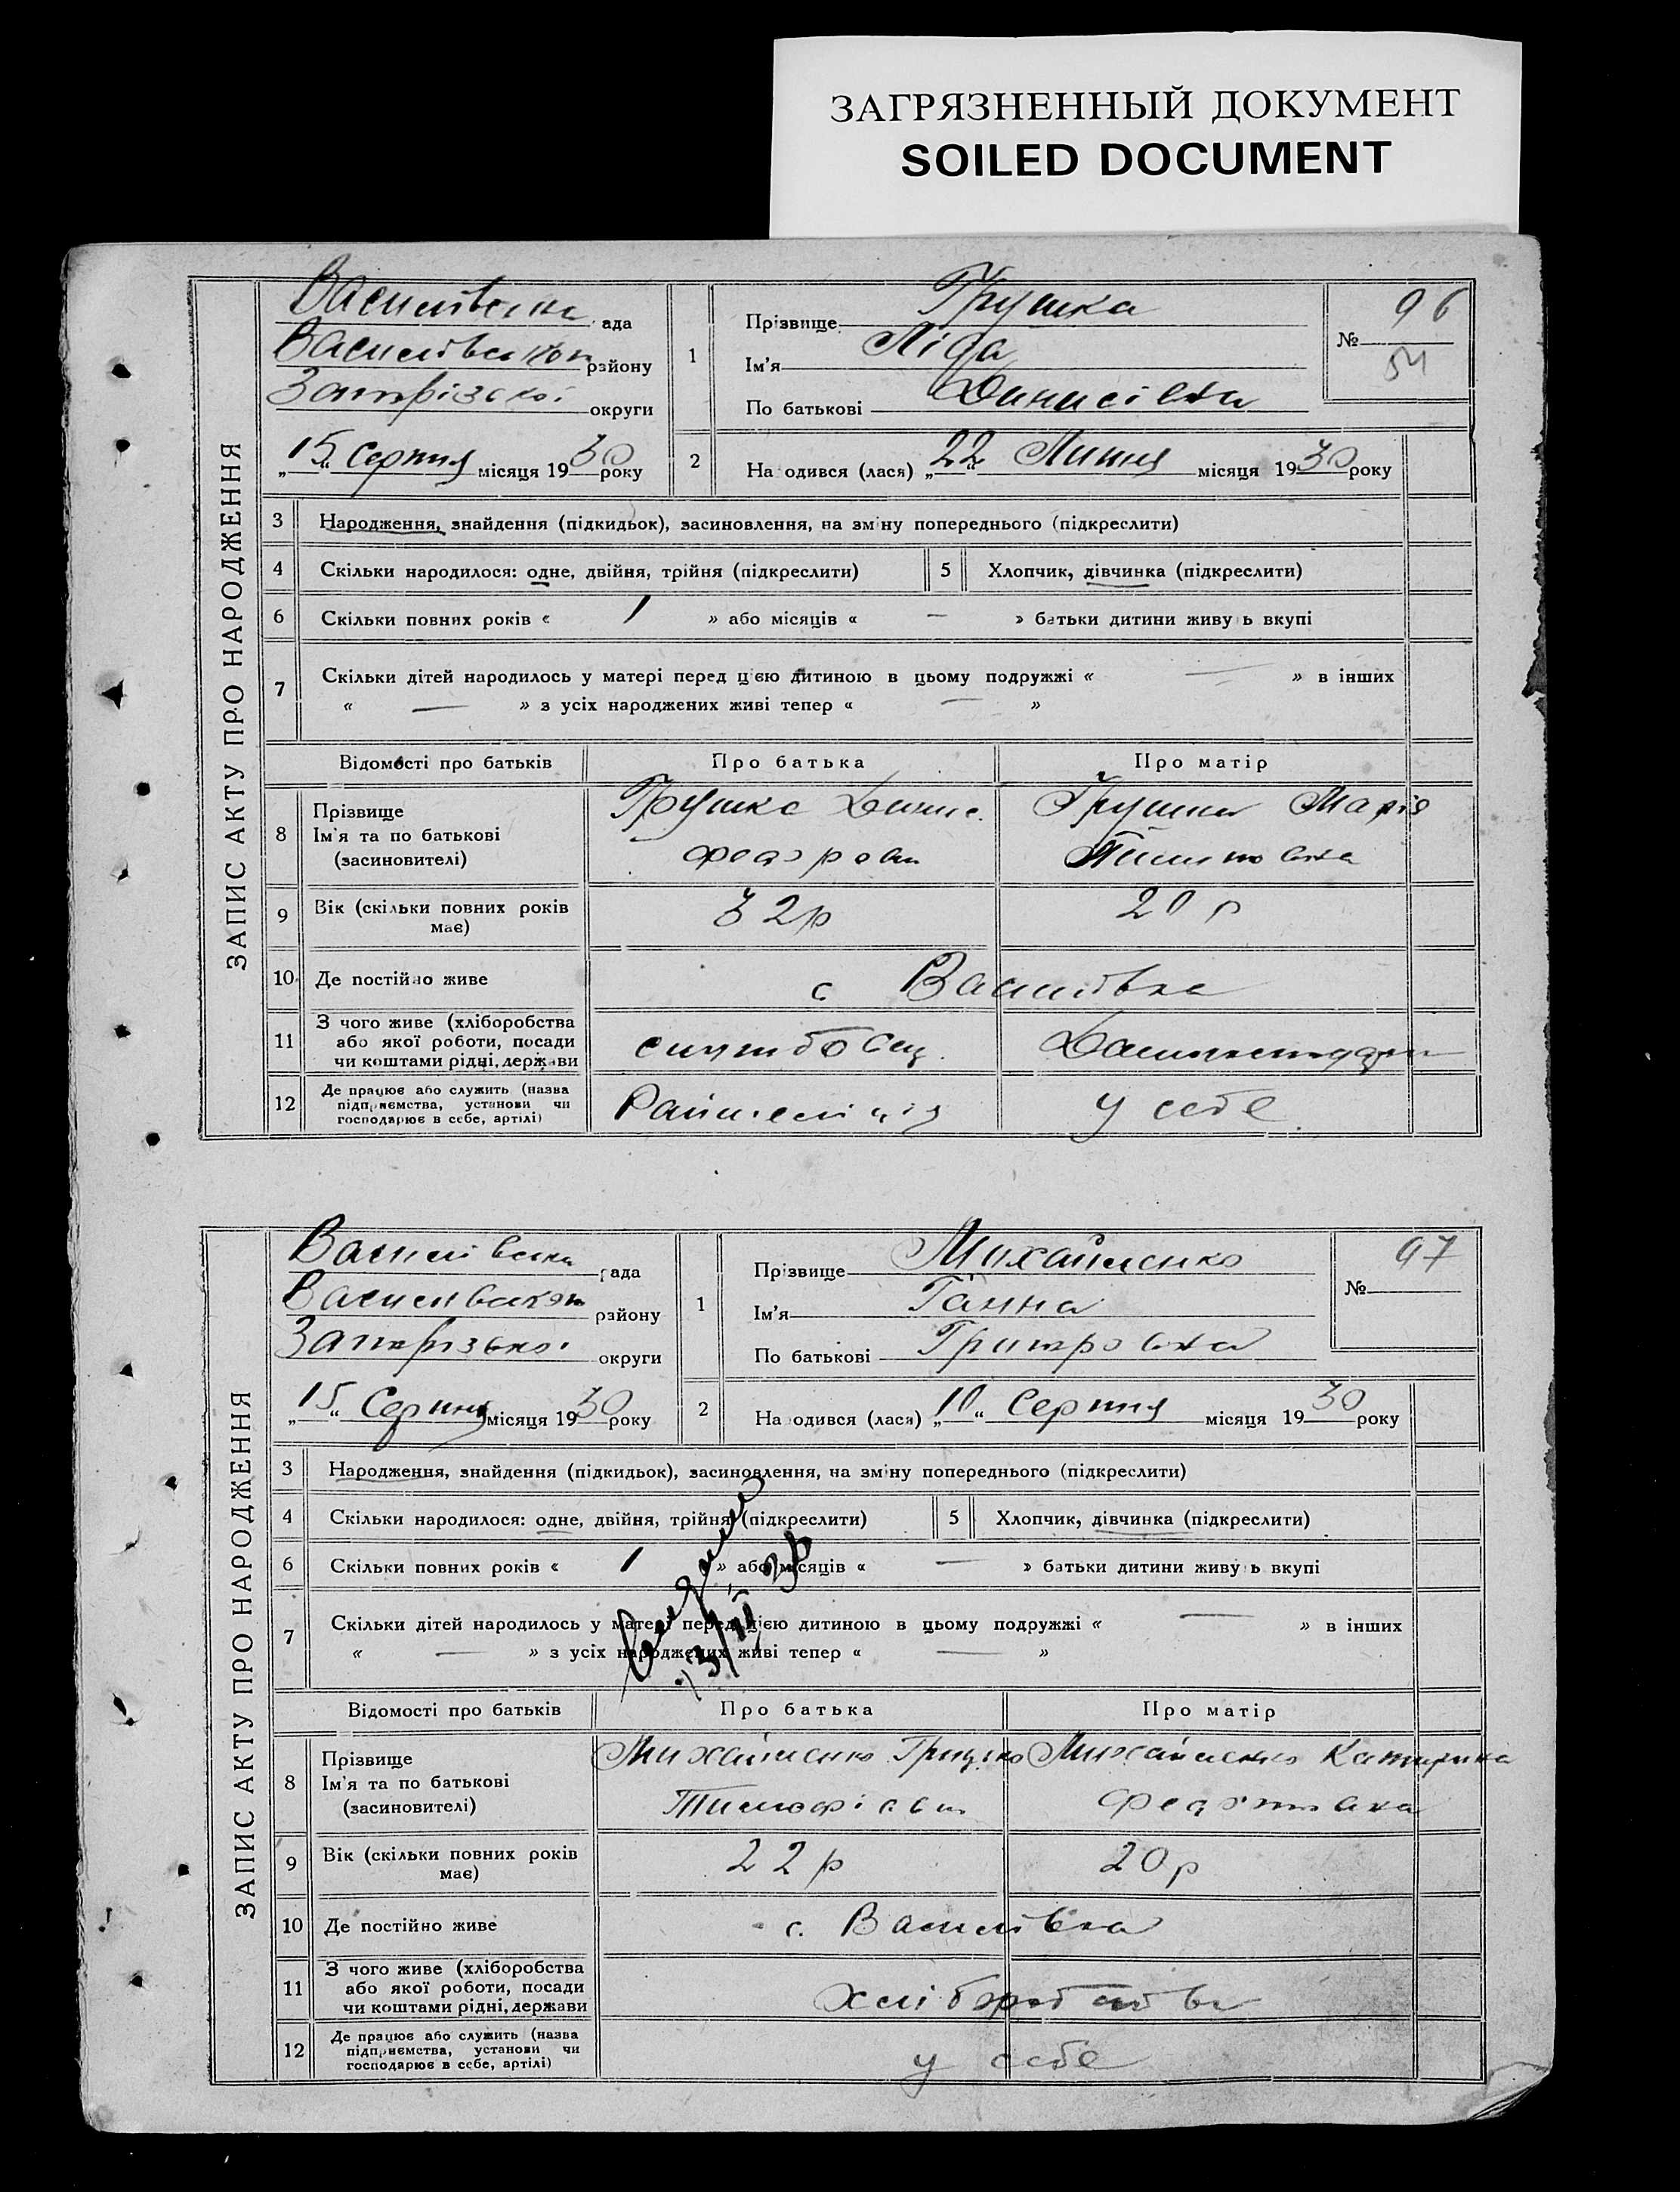 ЗАГРЯЗНЕННЫЙ ДОКУМЕНТ
SOILED DOCUMENT
ЗАПИС АКТУ ПРО НАРОДЖЕННЯ
Василівська рада
Василівського району
Запорізької округи
„15“ Серпня місяця 1930 року
1
Прізвище Грушка
Ім'я Ліда
По батькові Денисівна
№ 96
54
2
На одився (лася) „22“ Липня місяця 1930 року
3 Народження, знайдення (підкидьок), засиновлення, на зміну попереднього (підкреслити)
4 Скільки народилося: одне, двійня, трійня (підкреслити) 5 Хлопчик, дівчинка (підкреслити)
6 Скільки повних років « 1 » або місяців « — » батьки дитини живуть вкупі
7 Скільки дітей народилось у матері перед цією дитиною в цьому подружжі « — » в інших
« — » з усіх народжених живі тепер « — »
Відомості про батьків Про батька Про матір
8 Прізвище
Ім'я та по батькові
(засиновителі)
Грушка Денис
Федоров
Грушка Марія
9 Вік (скільки повних років має) 32р 20 р
10 Де постійно живе с Василівка
11 З чого живе (хліборобства
або якої роботи, посади
чи коштами рідні, держави
12 Де працює або служить (назва
підприємства, установи чи
господарює в себе, артілі)
Райміліція у себе
ЗАПИС АКТУ ПРО НАРОДЖЕННЯ
Василівська рада
Василівського району
Запорізької округи
„15“ Серпня місяця 1930 року
1
Прізвище Михайленко
Ім'я Ганна
По батькові Григоровна
№ 97
2
На одився (лася) „10“ Серпня місяця 1930 року
3 Народження, знайдення (підкидьок), засиновлення, на зміну попереднього (підкреслити)
4 Скільки народилося: одне, двійня, трійня (підкреслити) 5 Хлопчик, дівчинка (підкреслити)
6 Скільки повних років « 1 » або місяців « — » батьки дитини живуть вкупі
7 Скільки дітей народилось у матері перед цією дитиною в цьому подружжі « — » в інших
« — » з усіх народжених живі тепер « — »
Відомості про батьків Про батька Про матір
8 Прізвище
Ім'я та по батькові
(засиновителі)
Михайленко Грицько
Тимофієв
Михайленко Катерина
Федотовна
9 Вік (скільки повних років має) 22р 20р
10 Де постійно живе с. Василівка
11 З чого живе (хліборобства
або якої роботи, посади
чи коштами рідні, держави
хліборобство
12 Де працює або служить (назва
підприємства, установи чи
господарює в себе, артілі)
у себе